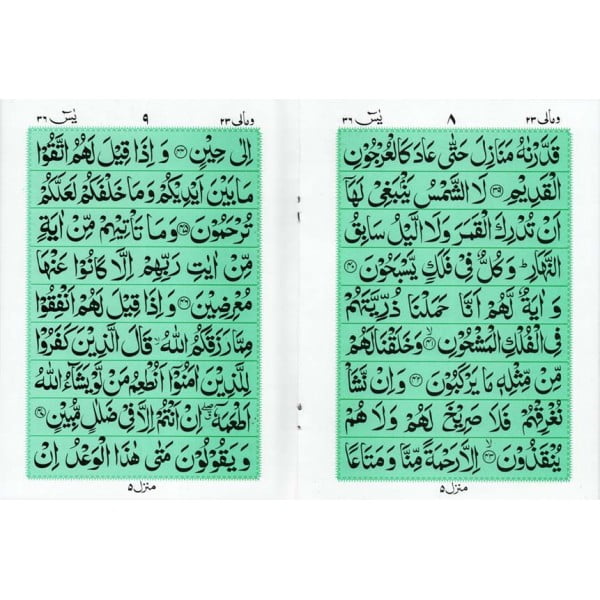 ومالى ٢٣ ٨ يٰسٓ ٣٦
قَدَّرْنٰهُ مَنَازِلَ حَتّٰى عَادَ كَالْعُرْجُوْنِ
الْقَدِيْمِ ﴿٣٩﴾ لَا الشَّمْسُ يَنْۢبَغِيْ لَهَاۤ
اَنْ تُدْرِكَ الْقَمَرَ وَلَا الَّيْلُ سَابِقُ
النَّهَارِؕ وَ كُلٌّ فِيْ فَلَكٍ يَّسْبَحُوْنَ ﴿٤٠﴾
وَ اٰيَةٌ لَّهُمْ اَنَّا حَمَلْنَا ذُرِّيَّتَهُمْ
فِي الْفُلْكِ الْمَشْحُوْنِ ﴿٤١﴾ۙ وَخَلَقْنَا لَهُمْ
مِّنْ مِّثْلِهٖ مَا يَرْكَبُوْنَ ﴿٤٢﴾ وَاِنْ نَّشَاْ
نُغْرِقْهُمْ فَلَا صَرِيْخَ لَهُمْ وَلَا هُمْ
يُنْقَذُوْنَ ﴿٤٣﴾ۙ اِلَّا رَحْمَةً مِّنَّا وَمَتَاعًا
منزل ٥
ومالى ٢٣ ٩ يٰسٓ ٣٦
اِلٰى حِيْنٍ ﴿٤٤﴾ وَ اِذَا قِيْلَ لَهُمُ اتَّقُوْا
مَا بَيْنَ اَيْدِيْكُمْ وَمَا خَلْفَكُمْ لَعَلَّكُمْ
تُرْحَمُوْنَ ﴿٤٥﴾ وَمَا تَاْتِيْهِمْ مِّنْ اٰيَةٍ
مِّنْ اٰيٰتِ رَبِّهِمْ اِلَّا كَانُوْا عَنْهَا
مُعْرِضِيْنَ ﴿٤٦﴾ وَاِذَا قِيْلَ لَهُمْ اَنْفِقُوْا
مِمَّا رَزَقَكُمُ اللّٰهُۙ قَالَ الَّذِيْنَ كَفَرُوْا
لِلَّذِيْنَ اٰمَنُوْۤا اَنُطْعِمُ مَنْ لَّوْ يَشَآءُ اللّٰهُ
اَطْعَمَهٗۤ ۖ اِنْ اَنْتُمْ اِلَّا فِيْ ضَلٰلٍ مُّبِيْنٍ ﴿٤٧﴾
وَ يَقُوْلُوْنَ مَتٰى هٰذَا الْوَعْدُ اِنْ
منزل ٥